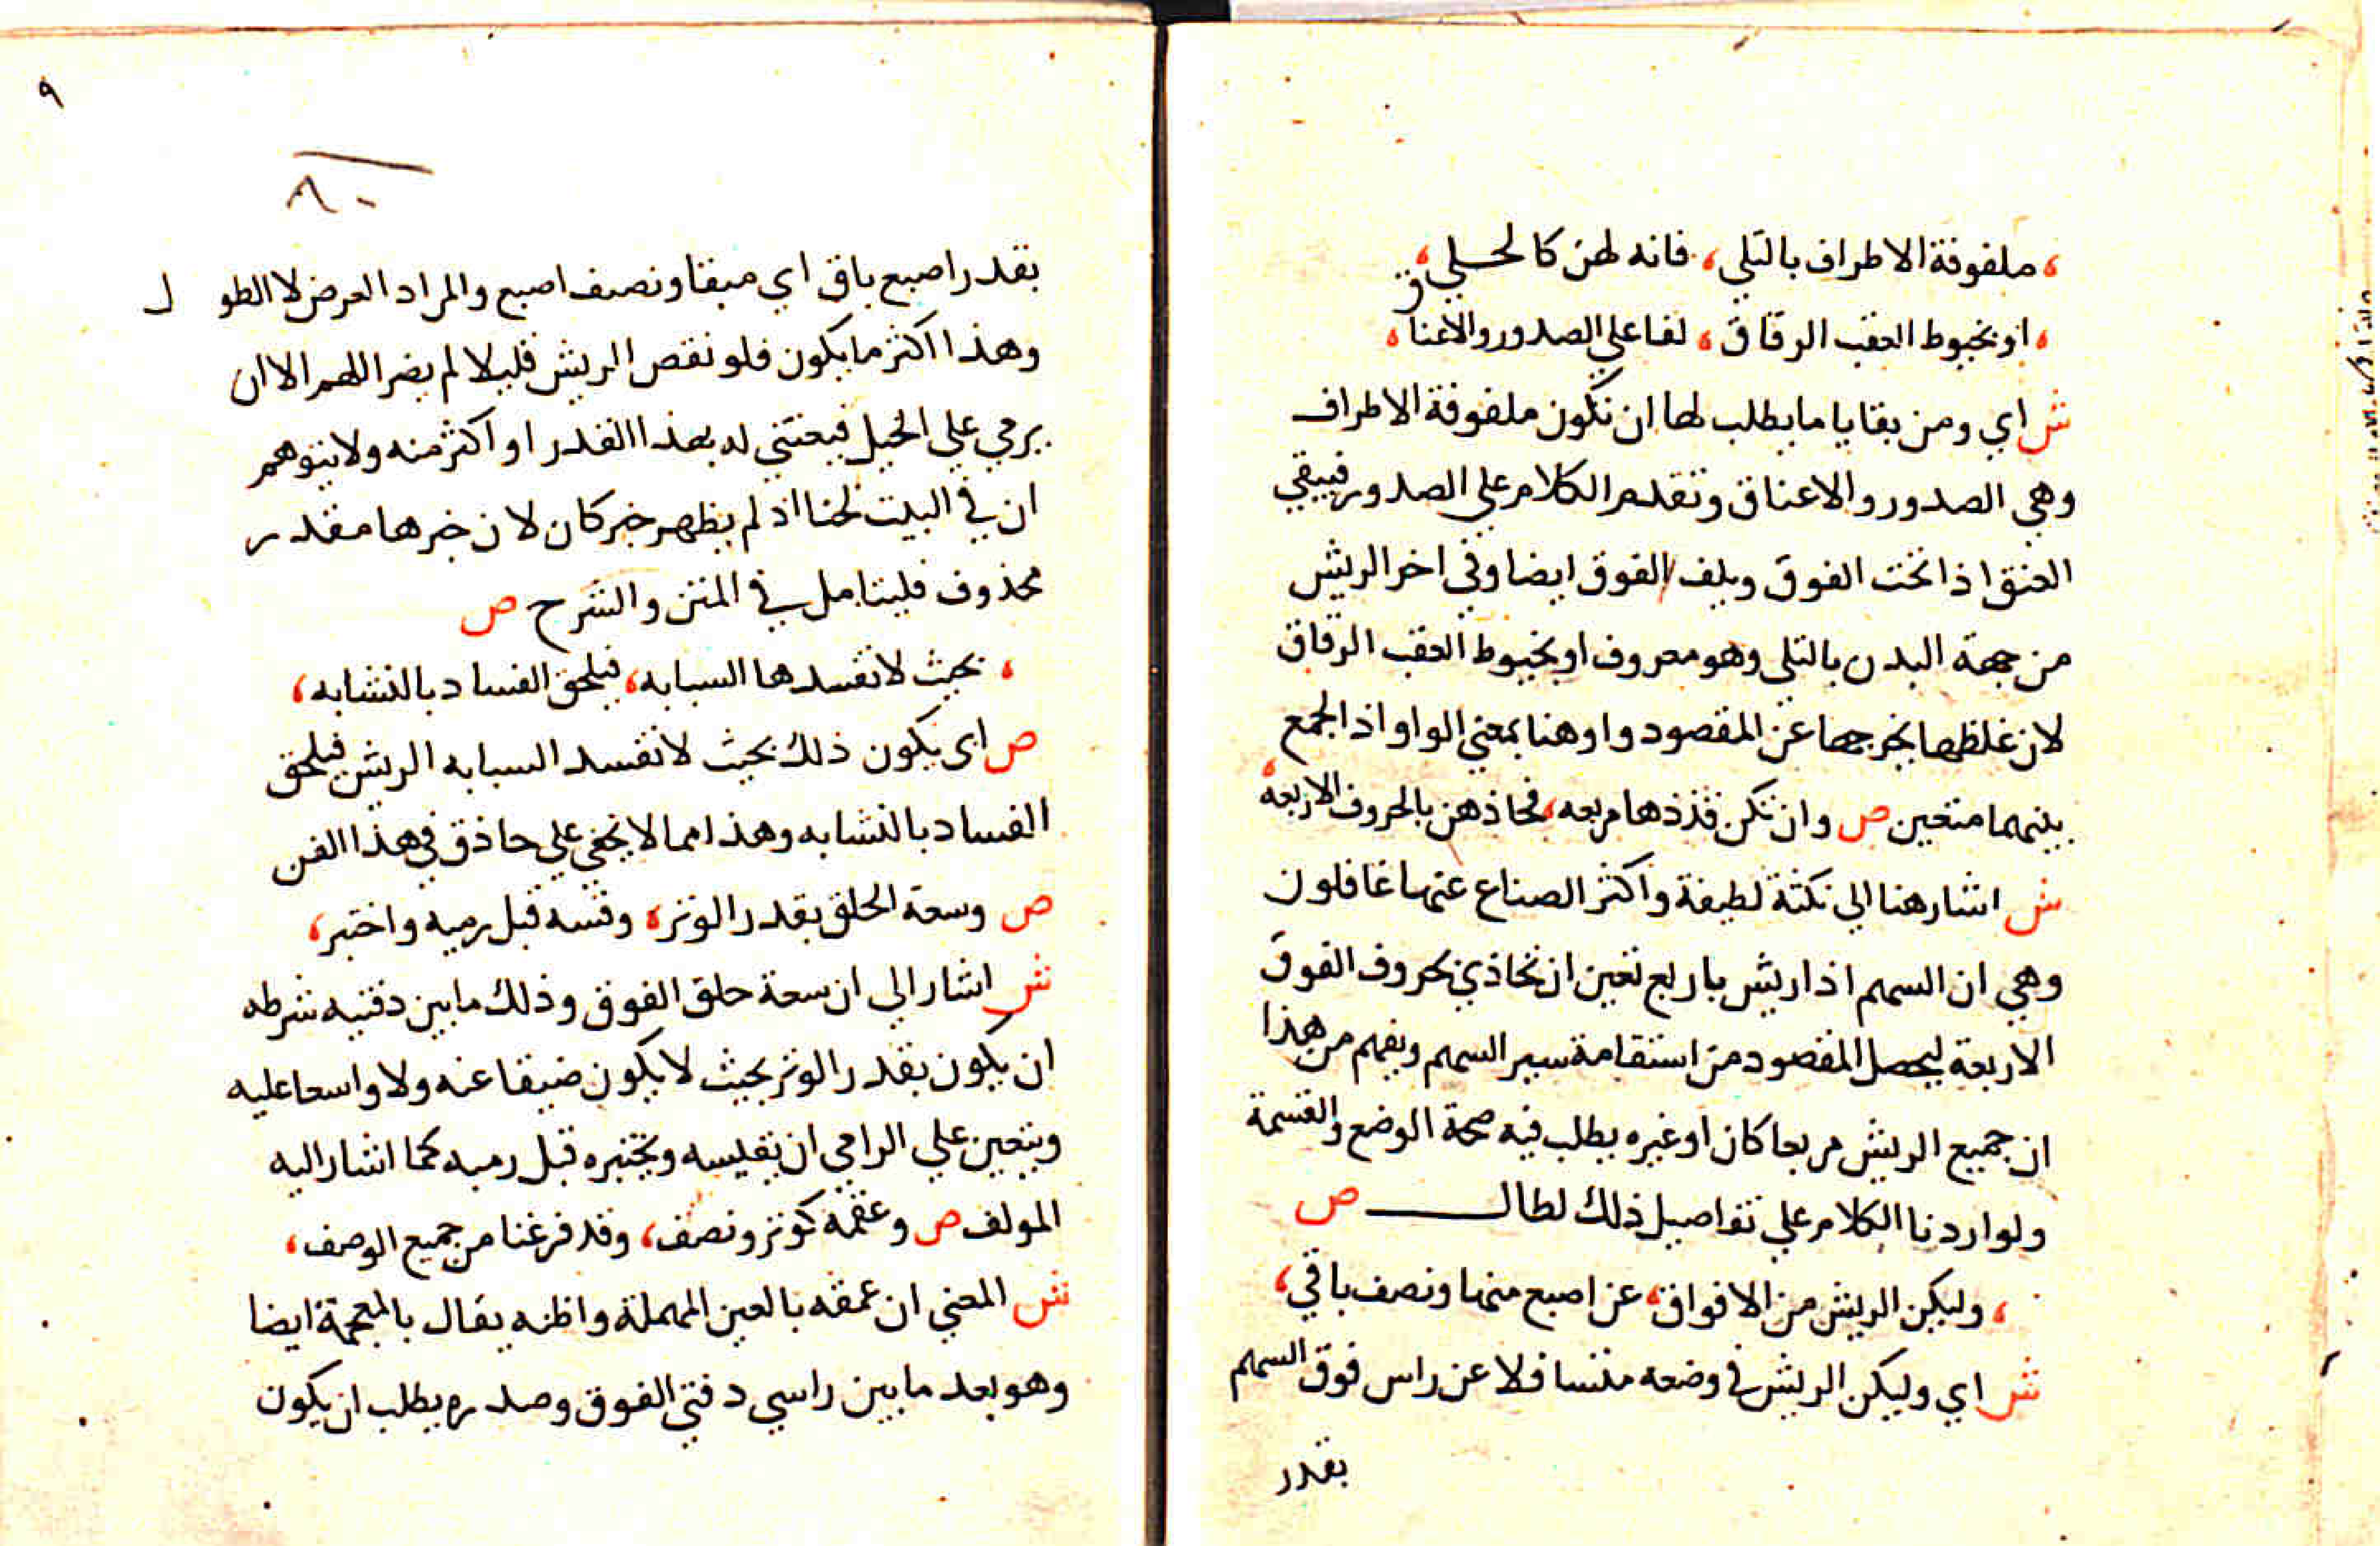 ، ملفوفة الاطراف بالتلي، فانه لهن كالحلي،
، او بخيوط العقب الرقاق، لفا علي الصدور والاعناق،
ش اي ومن بقايا ما يطلب لها ان تكون ملفوفة الاطراف
وهي الصدور والاعناق وتقدم الكلام علي الصدور فيبقي
العنق اذا تحت الفوق ويلف الفوق ايضا وفي اخر الريش
من جهة البدن بالتلي وهو معروف او بخيوط العقب الرقاق
لان غلظها يخرجها عن المقصود واو هنا بمعني الواو اذ الجمع
بينهما متعين ص وان تكن قذذها مربعه، فحاذهن بالحروف الاربعه،
ش اشار هنا الي نكتة لطيفة واكثر الصناع عنها غافلون
وهي ان السهم اذا ريش باربع تعين ان تحاذي بحروف الفوق
الاربعة ليحصل المقصود من استقامة سير السهم ويفهم من هذا
ان جميع الريش مربعا كان او غيره يطلب فيه صحة الوضع والقسمة
ولو اردنا الكلام علي تفاصيل ذلك لطال ص
، وليكن الريش من الافواق، عن اصبع منها ونصف باقي،
ش اي وليكن الريش في وضعه متسافلا عن راس فوق السهم
بقدر
٩
٨٠
بقدر اصبع باق اي مبقا ونصف اصبع والمراد العرض لا الطول
وهذا اكثر ما يكون فلو نقص الريش قليلا لم يضر اللهم الا ان
يرمي علي الخيل فيعتني له بهذا القدر او اكثر منه ولا يتوهم
ان في البيت لحنا اذ لم يظهر خبر كان لان خبرها مقدر
محذوف فليتامل في المتن والشرح ص
، بحيث لا تفسدها السبابه، فيلحق الفساد بالنشابه،
ص اي يكون ذلك بحيث لا تفسد السبابه الريش فيلحق
الفساد بالنشابه وهذا مما لا يخفي علي حاذق في هذا الفن
ص وسعة الحلق بقدر الوتر، وقسه قبل رميه واختبر،
ش اشار الي ان سعة حلق الفوق وذلك ما بين دفتيه شرطه
ان يكون بقدر الوتر بحيث لا يكون ضيقا عنه ولا واسعا عليه
ويتعين علي الرامي ان يقيسه ويختبره قبل رميه كما اشار اليه
المولف ص وعمقه كوتر ونصف، وقد فرغنا من جميع الوصف،
ش المعني ان عمقه بالعين المهملة واظنه يقال بالمعجمة ايضا
وهو بعد ما بين راسي دفتي الفوق وصدره يطلب ان يكون